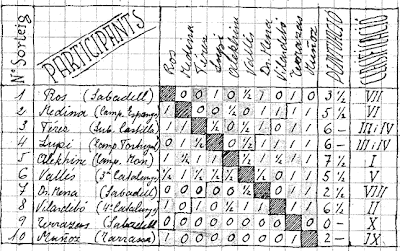 Nº Sorteig PARTICIPANTS Ros Medina Pérez Lupi Alekhine Vallés Vilardebó Terrazas Muñoz PUNTUACIÓ CLASSIFICACIÓ
1 Ros (Sabadell) 0 0 1 0 ½ 1 0 1 0 3 ½ VII
2 Medina (Camp. Espanya) 1 0 0 ½ 0 1 1 1 1 5 ½ VI
3 Pérez (Sub. Castilla) 1 1 ½ 0 ½ 1 0 1 1 6 – III i IV
4 Lupi (Camp. Portugal) 0 1 ½ 0 ½ 1 1 1 1 6 – III i IV
5 Alekhine (Camp. Mon) 1 ½ 1 1 ½ 1 ½ 1 1 7 ½ I
6 Vallés (3er Catalunya) ½ 1 ½ ½ ½ ½ 0 1 1 5 ½ V
7 (Sabadell) 0 0 0 0 0 ½ 0 1 1 2 ½ VIII
8 Vilardebó (4rt Catalunya) 1 0 1 0 ½ 1 1 1 1 6 ½ II
9 Terrazas (Sabadell) 0 0 0 0 0 0 0 0 0 0 – X
10 Muñoz (Tarrassa) 1 0 0 0 0 0 0 0 1 2 – IX